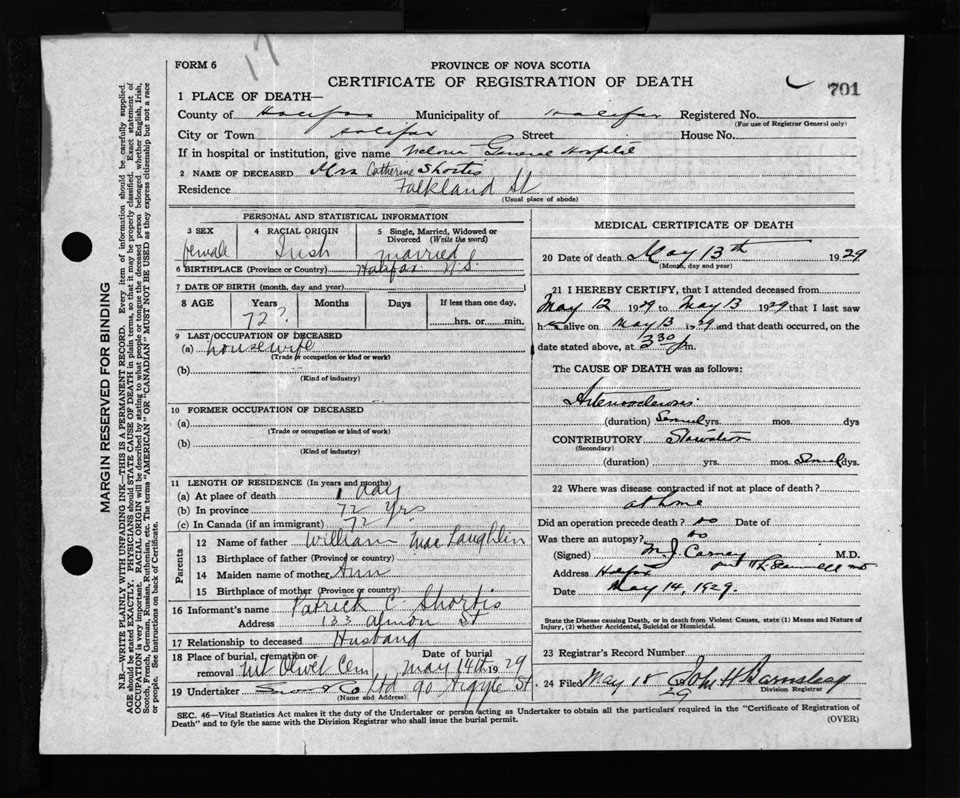 17
FORM 6
PROVINCE OF NOVA SCOTIA
CERTIFICATE OF REGISTRATION OF DEATH
701
1 PLACE OF DEATH—
County of Halifax Municipality of Halifax Registered No.
(For use of Registrar General only)
City or Town Halifax Street House No.
If in hospital or institution, give name Victoria General Hospital
2 NAME OF DECEASED Mrs Catherine Shortis
Residence Falkland St
(Usual place of abode)
PERSONAL AND STATISTICAL INFORMATION
3 SEX 4 RACIAL ORIGIN 5 Single, Married, Widowed or Divorced (Write the word)
female Irish Married
6 BIRTHPLACE (Province or Country) Halifax N.S.
7 DATE OF BIRTH (month, day and year)
8 AGE Years Months Days If less than one day,
72? hrs. or min.
9 LAST OCCUPATION OF DECEASED
(a) housewife
(Trade or occupation or kind or work)
(b)
(Kind of industry)
10 FORMER OCCUPATION OF DECEASED
(a)
(Trade or occupation or kind of work)
(b)
(Kind of industry)
11 LENGTH OF RESIDENCE (In years and months)
(a) At place of death 1 day
(b) In province 72 yrs
(c) In Canada (if an immigrant) 72
Parents
12 Name of father William MacLaughlin
13 Birthplace of father (Province or country)
14 Maiden name of mother Ann
15 Birthplace of mother (Province or country)
16 Informant's name Patrick C. Shortis
Address 133 Almon St
17 Relationship to deceased Husband
18 Place of burial, cremation or removal Mt Olivet Cem Date of burial May 14th 1929
19 Undertaker & Co Ltd 90 Argyle St
(Name and Address)
MEDICAL CERTIFICATE OF DEATH
20 Date of death May 13th 1929
(Month, day and year)
21 I HEREBY CERTIFY, that I attended deceased from
May 12 1929 to May 13 1929 that I last saw
her alive on May 13 1929 and that death occurred, on the
date stated above, at 3 30 p.m.
The CAUSE OF DEATH was as follows:
Arteriosclerosis
(duration) Several yrs. mos. dys
CONTRIBUTORY Starvation
(Secondary)
(duration) yrs. mos. Several dys.
22 Where was disease contracted if not at place of death?
at home
Did an operation precede death? no Date of
Was there an autopsy? no
(Signed) M. J. Carney M.D.
Address Halifax
Date May 14, 1929.
State the Disease causing Death, or in death from Violent Causes, state (1) Means and Nature of
Injury, (2) whether Accidental, Suicidal or Homicidal.
23 Registrar's Record Number
24 Filed May 18 1929 John H Barnstead
Division Registrar
SEC. 46—Vital Statistics Act makes it the duty of the Undertaker or person acting as Undertaker to obtain all the particulars required in the "Certificate of Registration of
Death" and to fyle the same with the Division Registrar who shall issue the burial permit.
(OVER)
MARGIN RESERVED FOR BINDING
N.B.—WRITE PLAINLY WITH UNFADING INK—THIS IS A PERMANENT RECORD. Every item of information should be carefully supplied.
AGE should be stated EXACTLY. PHYSICIANS should STATE CAUSE OF DEATH in plain terms, so that it may be properly classified. Exact statement of
OCCUPATION is very important. RACIAL ORIGIN will be described by stating to what people or tongue the deceased person belonged whether English, Irish,
Scotch, French, German, Russian, Ruthenian, etc. The terms "AMERICAN" OR "CANADIAN" MUST NOT BE USED as they express citizenship but not a race
or people. See instructions on back of Certificate.